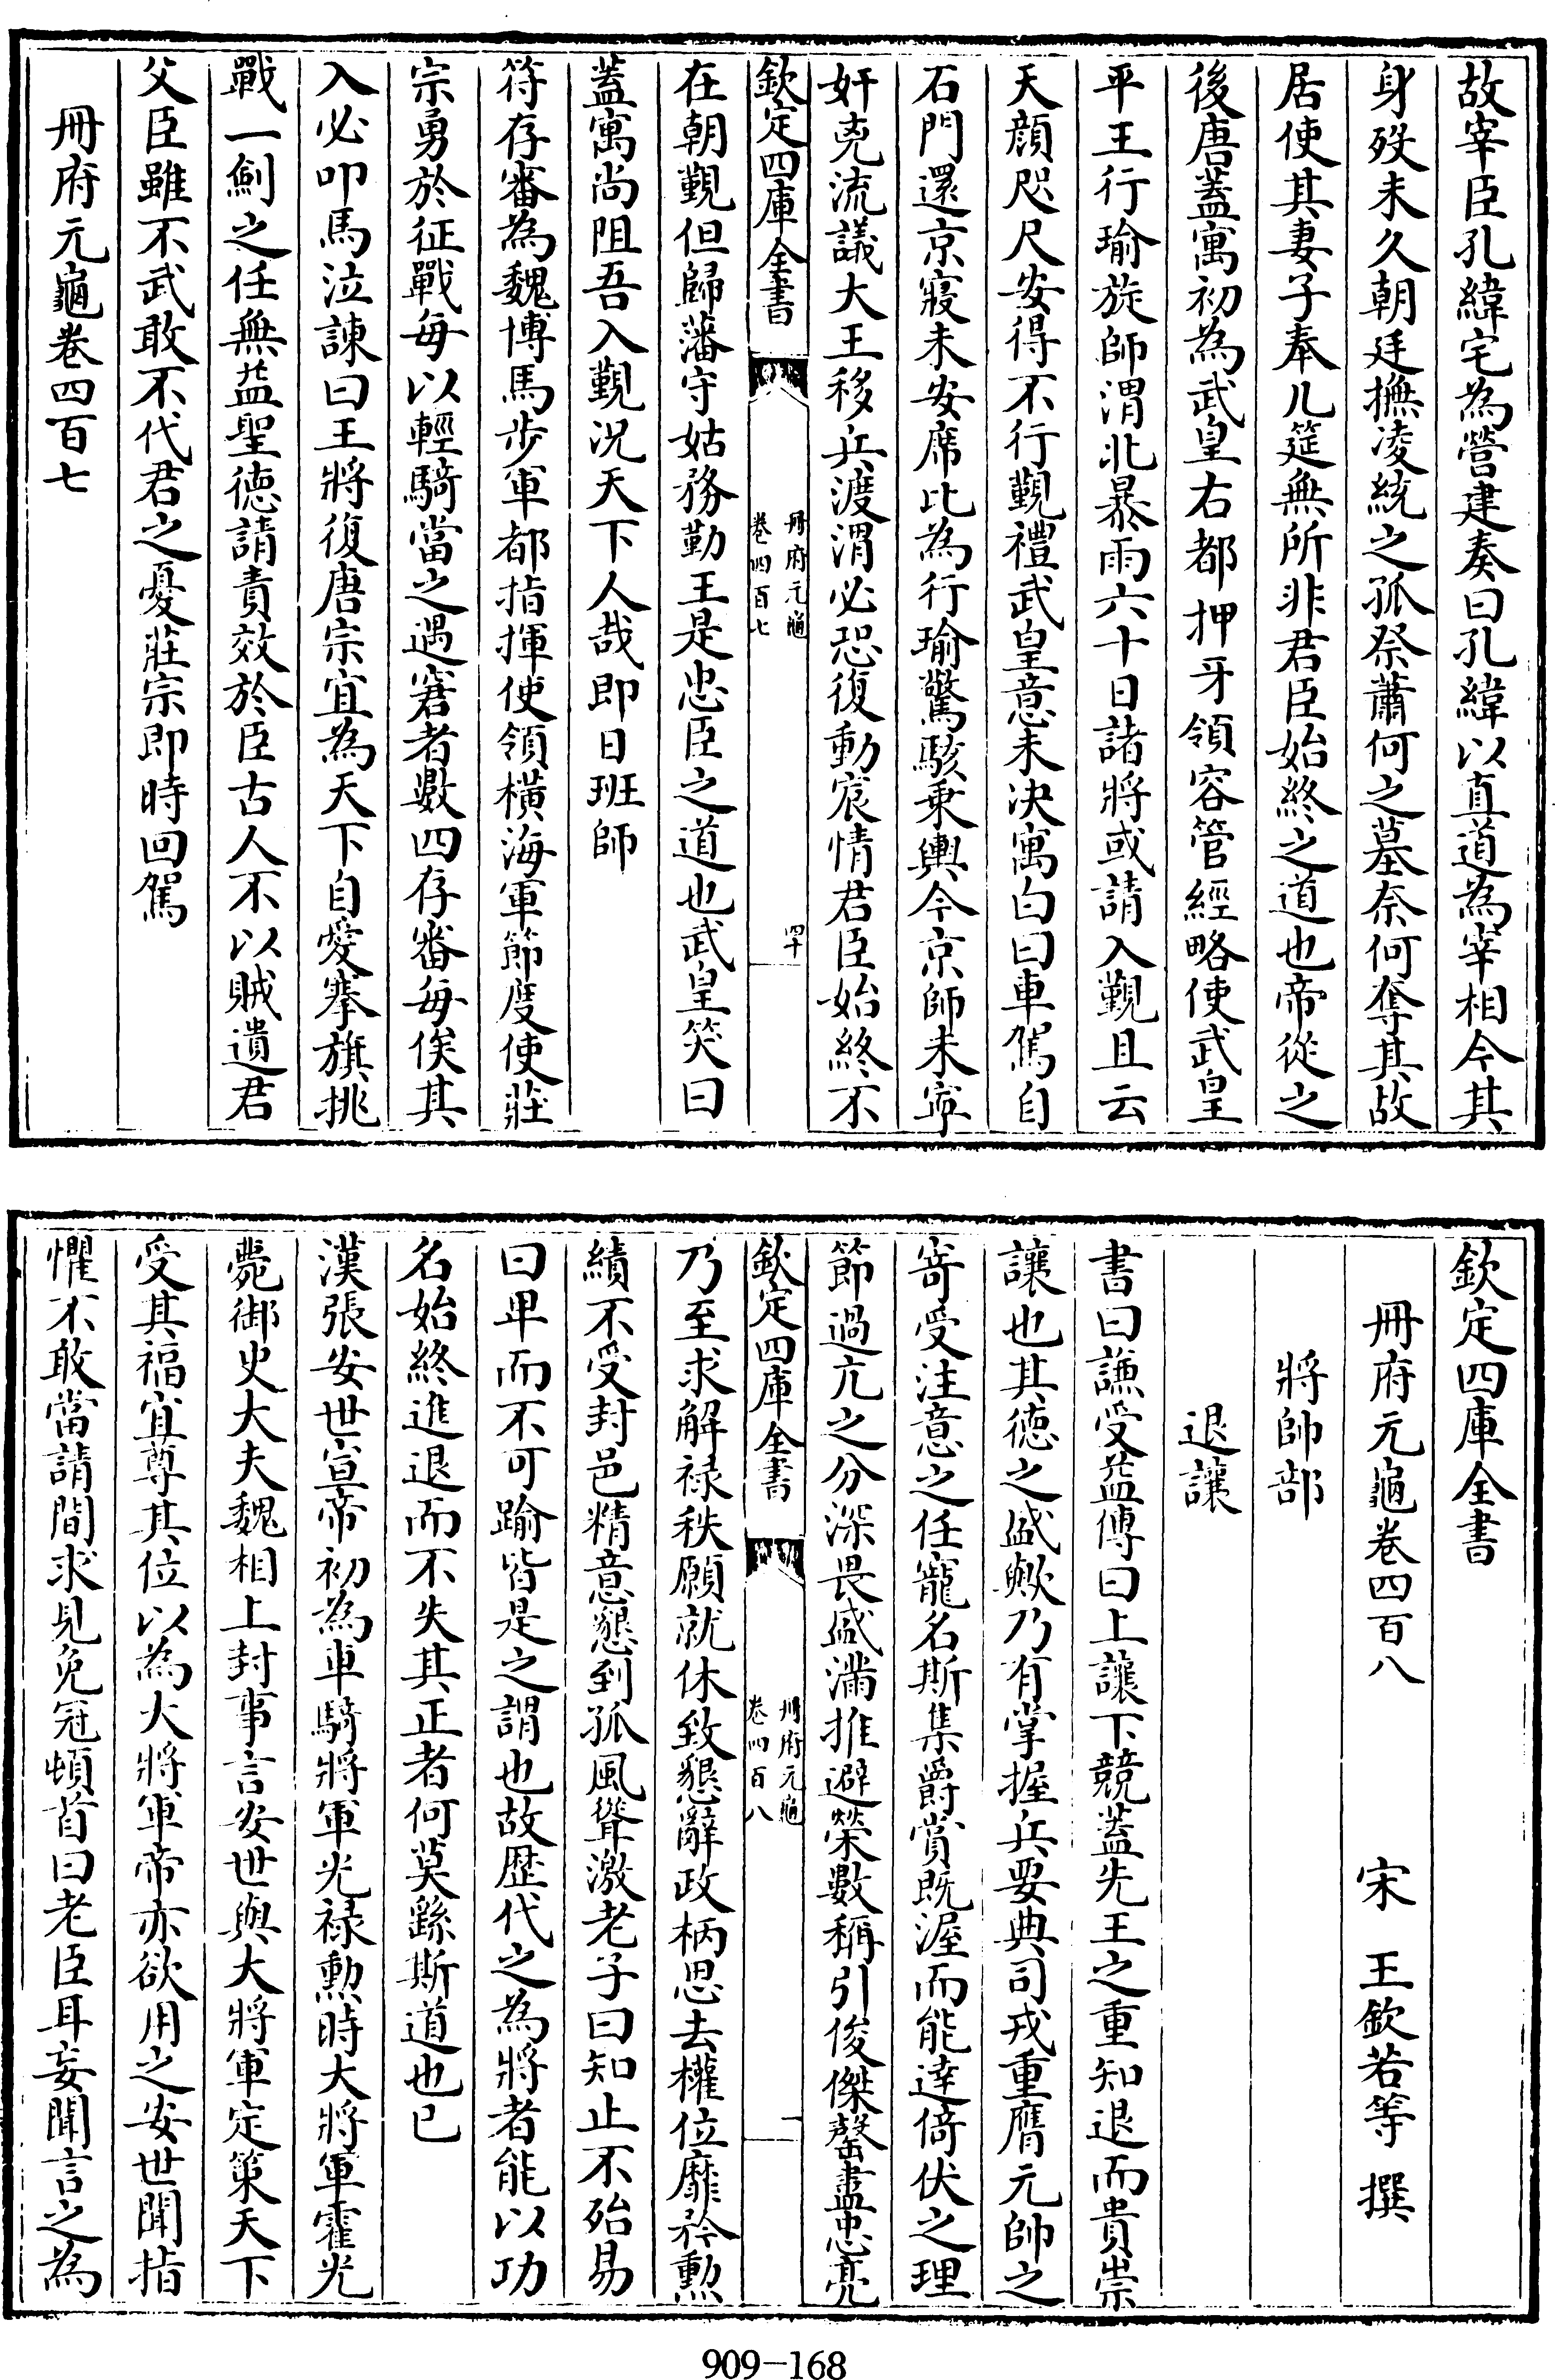 故宰臣孔緯宅為營建奏曰孔緯以直道為宰相今其
身歿未久朝廷撫凌統之孤祭蕭何之墓奈何奪其故
居使其妻子奉几筵無所非君臣始終之道也帝從之
後唐蓋寓初為武皇右都押牙領容管經略使武皇
平王行瑜旋師渭北暴雨六十日諸將或請入覲且云
天顔咫尺安得不行覲禮武皇意未决寓白曰車駕自
石門還京寢未安席比為行瑜驚駭乗輿今京師未寧
奸兇流議大王移兵渡渭必恐復動宸情君臣始終不
欽定四庫全書
冊府元龜
卷四百七
四十
在朝覲但歸藩守姑務勤王是忠臣之道也武皇笑曰
蓋寓尚阻吾入覲况天下人哉即日班師
符存審為魏博馬步軍都指揮使領橫海軍節度使莊
宗勇於征戰每以輕騎當之遇窘者數四存審每俟其
入必叩馬泣諫曰王將復唐宗宜為天下自愛搴旗挑
戰一劍之任無益聖德請責效於臣古人不以賊遺君
父臣雖不武敢不代君之憂莊宗即時回駕
冊府元龜卷四百七
欽定四庫全書
冊府元龜卷四百八
宋 王欽若等 撰
將帥部
退讓
書曰謙受益傳曰上讓下競蓋先王之重知退而貴崇
讓也其德之盛歟乃有掌握兵要典司戎重膺元帥之
寄受注意之任寵名斯集爵賞既渥而能達倚伏之理
節過亢之分深畏盛滿推避榮數稱引俊傑罄盡忠亮
欽定四庫全書
冊府元龜
卷四百八
一
乃至求解祿秩願就休致懇辭政柄思去權位靡矜勲
績不受封邑精意懇到孤風聳激老子曰知止不殆易
曰卑而不可踰皆是之謂也故歴代之為將者能以功
名始終進退而不失其正者何莫繇斯道也已
漢張安世宣帝初為車騎將軍光禄勲時大將軍霍光
薨御史大夫魏相上封事言安世與大將軍定策天下
受其福宜尊其位以為大將軍帝亦欲用之安世聞指
懼不敢當請間求見免冠頓首曰老臣耳妄聞言之為
909-168